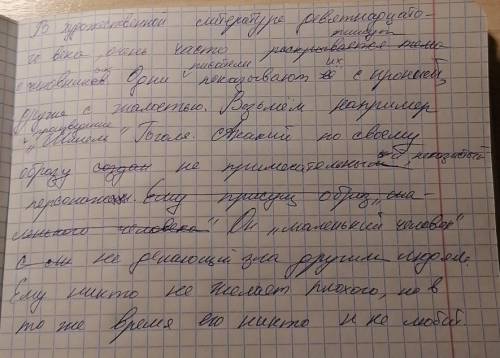 В художественной литературе девятнадцато-
го века очень часто раскрывается тема пишут
о чиновниках. Одни писатели показывают их с иронией,
другие с жалостью. Возьмём например
произведение "Шинель" Гоголя. Акакий по своему
образу создан не примечательный, неказистый
персонаж. Ему присущ образ "ма-
ленького человека" Он "маленький человек"
не делающий зла другим людям.
Ему никто не желает плохого, но в
то же время его никто и не любит.